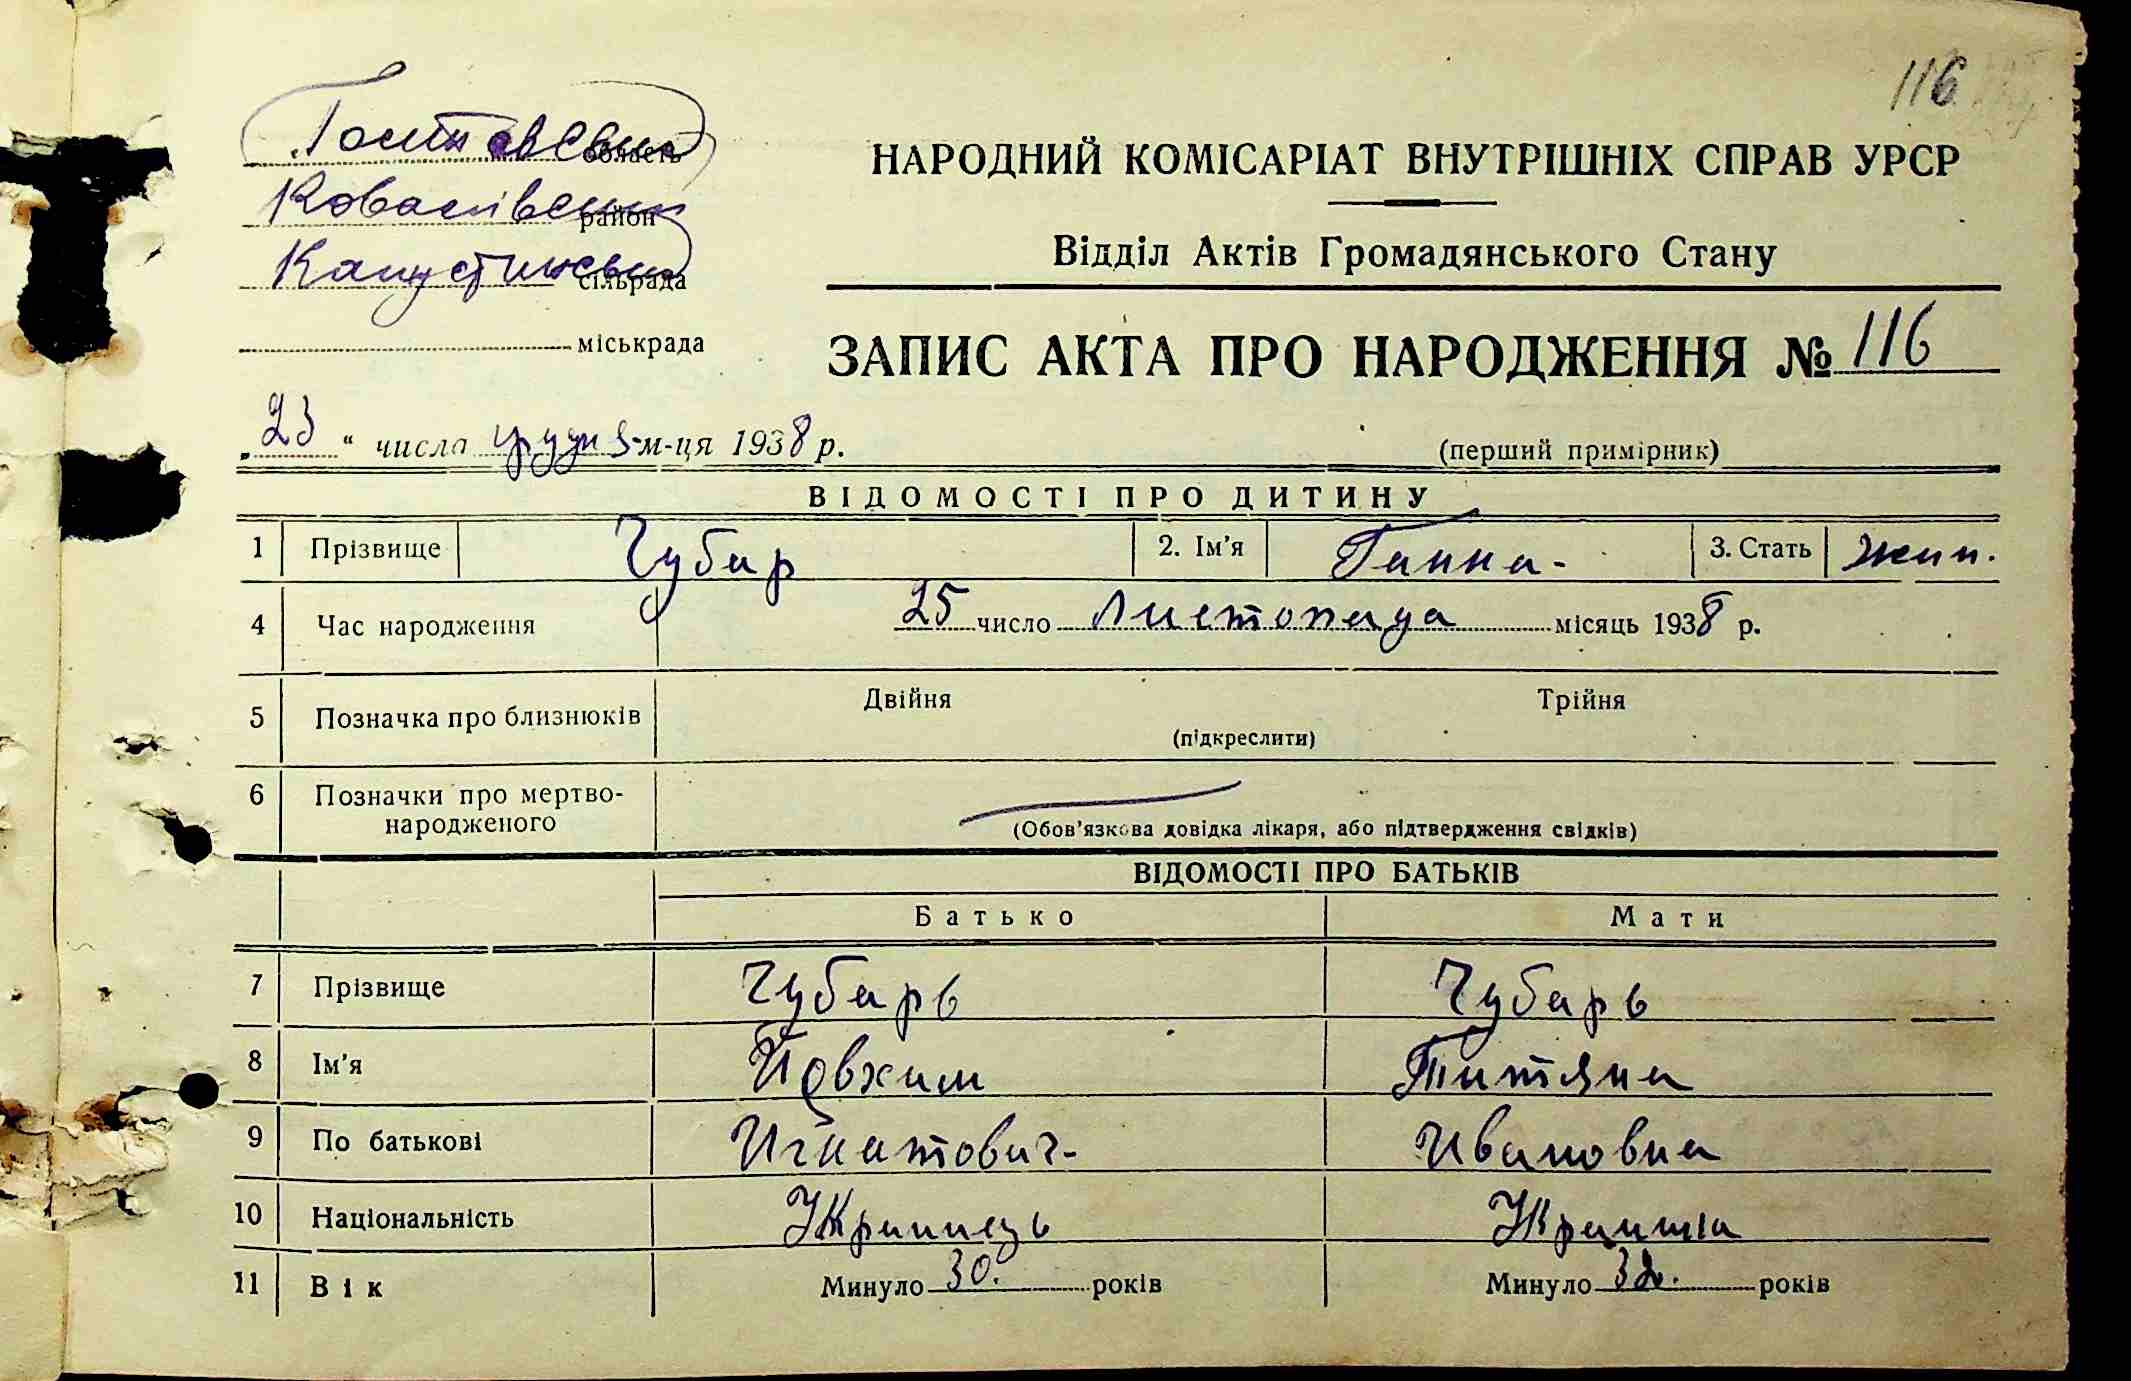 116
область
район
Капустинськ
сільрада
міськрада
НАРОДНИЙ КОМІСАРІАТ ВНУТРІШНІХ СПРАВ УРСР
Відділ Актів Громадянського Стану
ЗАПИС АКТА ПРО НАРОДЖЕННЯ № 116
„23“ числа грудня м-ця 1938 р.
(перший примірник)
ВІДОМОСТІ ПРО ДИТИНУ
1 Прізвище Чубар 2. Ім'я Ганна- 3. Стать жин.
4 Час народження 25 число Листопада місяць 1938 р.
5 Позначка про близнюків Двійня Трійня
(підкреслити)
6 Позначки про мертво-
народженого
(Обов'язкова довідка лікаря, або підтвердження свідків)
ВІДОМОСТІ ПРО БАТЬКІВ
Батько Мати
7 Прізвище Чубарь Чубарь
8 Ім'я Йовхим Титяна
9 По батькові Игнатович- Ивановна
10 Національність Украинець Украинка
11 Вік Минуло 30. років Минуло 32. років